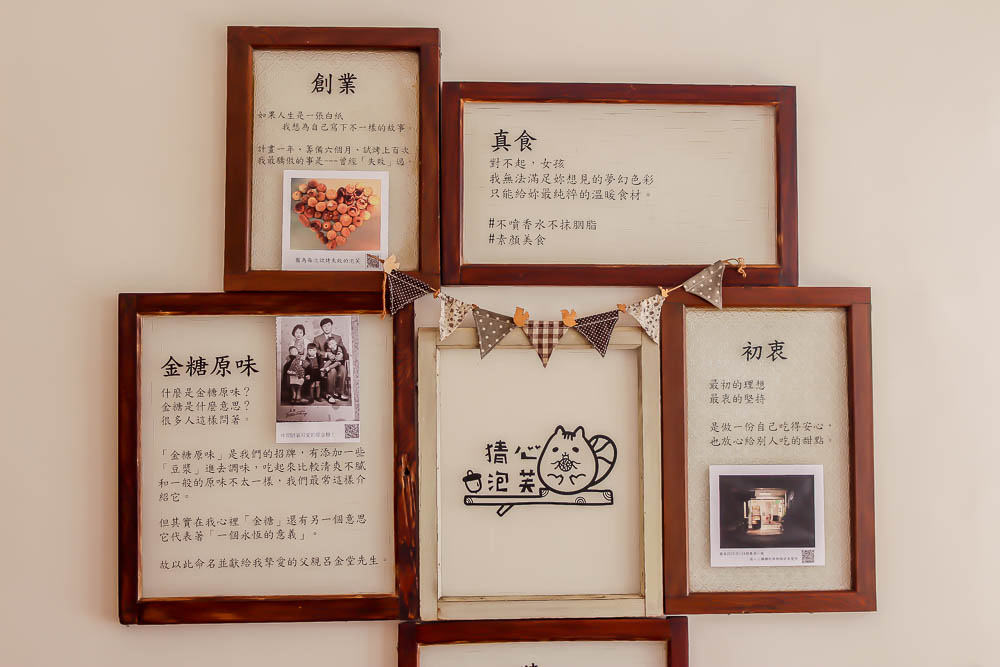 創業
如果人生是一張白紙
我想為自己寫下不一樣的故事。
計畫一年、籌備六個月、試烤上百次
我最驕傲的事是---曾經「失敗」過。
真食
對不起，女孩
我無法滿足妳想見的夢幻色彩
只能給妳最純淬的溫暖食材。
#不噴香水不抹胭脂
#素顏美食
金糖原味
什麼是金糖原味？
金糖是什麼意思？
很多人這樣問著。
「金糖原味」是我們的招牌，有添加一些
「豆漿」進去調味，吃起來比較清爽不膩
和一般的原味不太一樣，我們最常這樣介
紹它。
但其實在我心裡「金糖」還有另一個意思
它代表著「一個永恆的意義」。
故以此命名並獻給我摯愛的父親呂金堂先生。
猜心
泡芙
初衷
最初的理想
最衷的堅持
是做一份自己吃得安心，
也放心給別人吃的甜點。